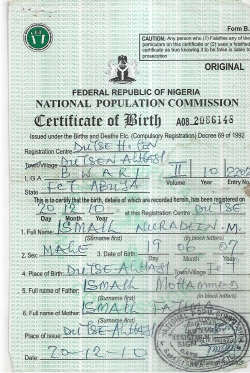 Form B.
CAUTION: Any person who (1) Falsifies any of the
particulars on this certificate or (2) uses a falsified
certificate as true knowing it to be false is liable to
prosecution
ORIGINAL
FEDERAL REPUBLIC OF NIGERIA
NATIONAL POPULATION COMMISSION
Certificate of Birth A08 2086148
Issued under the Births and Deaths Etc. (Compulsory Registration) Decree 69 of 1992
Registration Centre DUTSE
Town/Village DUTSEN ALHAJI
L.G.A. BWARI II 10 2202
Volume Year Entry No.
State FCT ABUJA
This is to certify that the birth, details of which are recorded herein, has been registered on
20 12 10 at this Registration Centre DUTSE
Day Month Year
1. Full Name: ISMAIL NURADEEN M.
(Surname first) (in block letters)
2. Sex: MALE 3. Date of Birth: 19 07
Day Month Year
4. Place of Birth: DUTSE ALHAJI
Town/Village
5. Full name of Father: ISMAIL MOHAMMED
(Surname first) (in block letters)
6. Full name of Mother: ISMAIL
(Surname first)
Place of issue DUTSE ALHAJI
Date 20-12-10